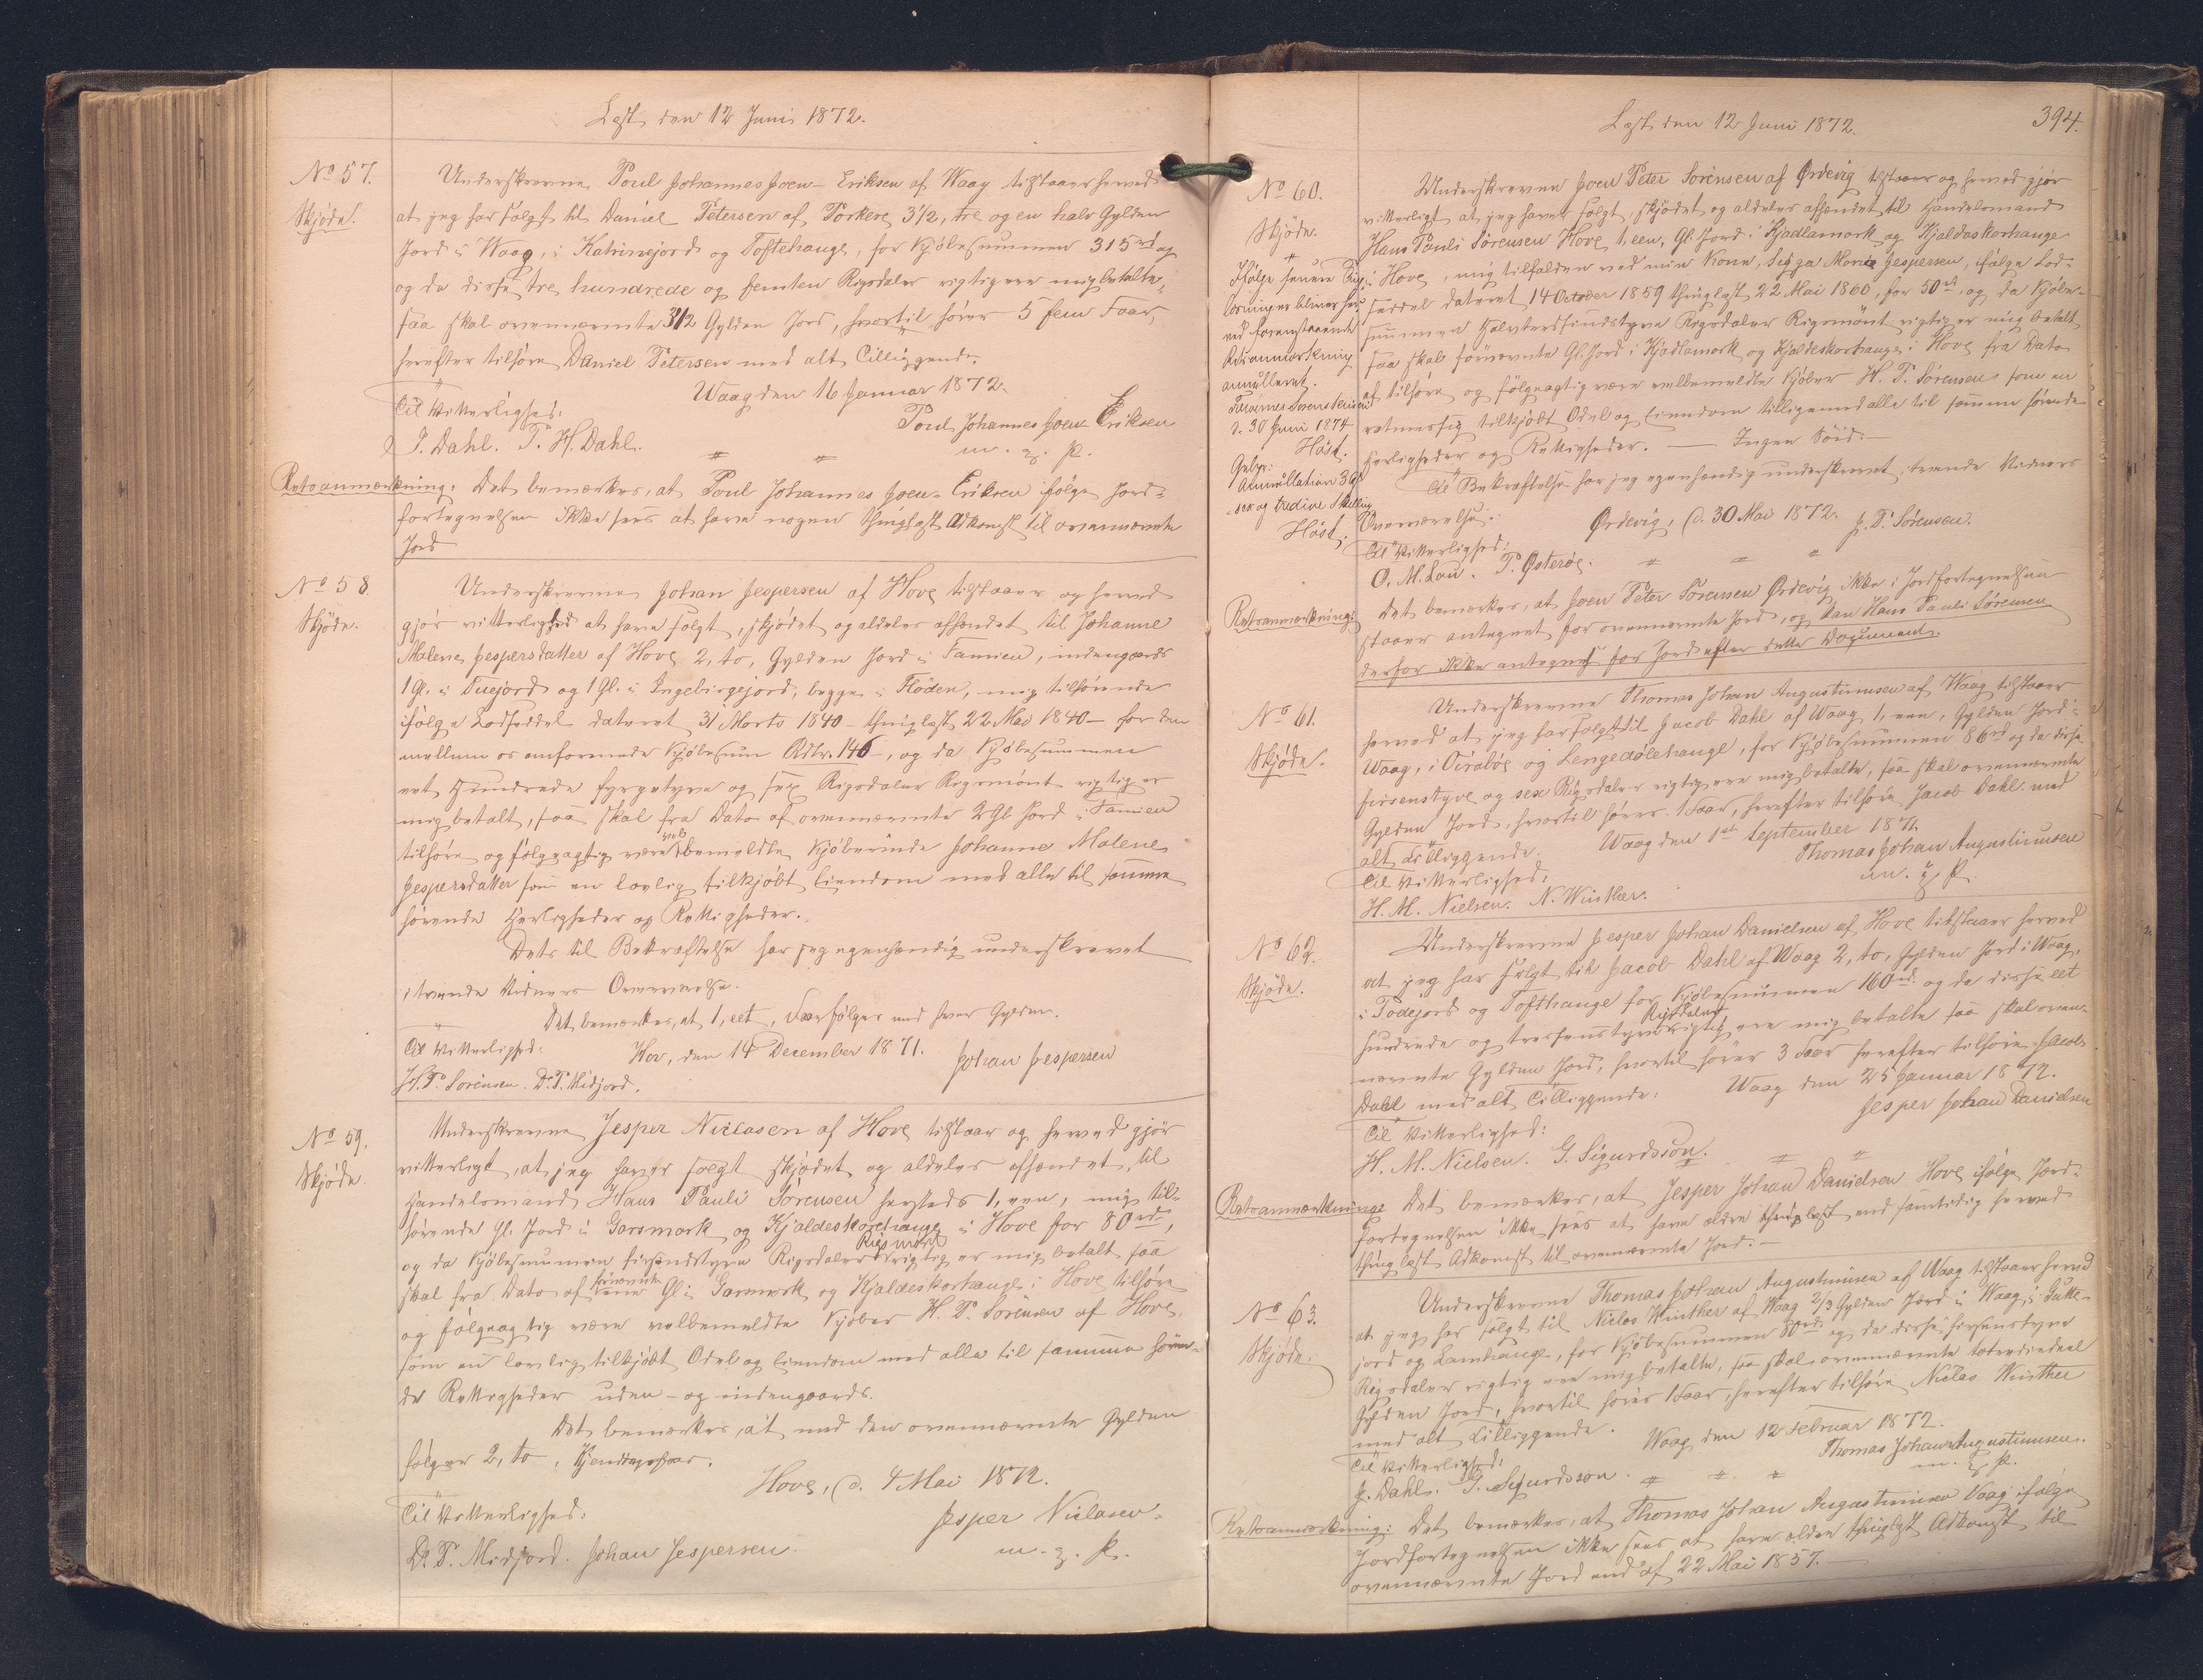 Læst den 12 Juni 1872.
No 57.
Skjøde.
Underskrevne Poul Johannes Joen-Eriksen af Waag tilstaaer herved
at jeg har solgt til Daniel Petersen af Porkere 3 1/2, tre og en halv Gylden
Jord i Waag, i Katrinejord og Toftehauge, for Kjøbesummen 315 rd og
og da disse tre hundrede og femten Rigsdaler rigtig ere mig betalte,
saa skal ovennævnte 3 1/2 Gylden Jord, hvortil hører 5 fem Faar,
herefter tilhøre Daniel Petersen med alt Tilliggende.
Waag den 16 Januar 1872.
Til Vitterlighed:
Poul Johannes Joen-Eriksen
J. Dahl. P. H. Dahl.
m. g. P.
Retsanmærkning: Det bemærkes, at Poul Johannes Joen-Eriksen ifølge Jord-
fortegnelsen ikke sees at have nogen thinglæst Adkomst til ovennævnte
Jord
No 58.
Skjøde.
Underskrevne Johan Jespersen af Hove tilstaaer og herved
gjør vitterlighed at have solgt, skjødet og aldeles afhændet til Johanne
Malene Jespersdatter af Hove 2, to, Gylden Jord i Famien, indengaards
1 Gl. i Tuejord og 1 Gl. i Ingebirgejord, begge i Flöden, mig tilhørende
ifølge Lodseddel dateret 31 Marts 1840 - thinglæst 22 Mai 1840 - for den
mellem os omforenede Kjøbesum Rdlr. 146 -, og da Kjøbesummen
eet Hundrede fyrgetyve og sex Rigsdaler Rigsmönt rigtig er
mig betalt, saa skal fra Dato af ovennævnte 2 Gl. Jord i Famien
tilhøre og følgeagtig være vel bemeldte Kjøberinde Johanne Malene
Jespersdatter som en lovlig tilkjøbt Eiendom med alle til samme
hørende Herligheder og Rettigheder.
Dets til Bekræftelse har jeg egenhændig underskrevet
i tvende Vidners Overværelse.
Det bemærkes, at 1, eet, Faar følger med hver Gylden.
Til Vitterlighed:
Hov, den 14 December 1871.
Johan Jespersen
H. P. Sörensen. D. P. Midjord.
No 59.
Skjøde.
Underskrevne Jesper Niclasen af Hove tilstaar og herved gjør
vitterligt, at jeg haver solgt skjødet og aldeles afhændet, til
Handelsmand Hans Pauli Sörensen hersteds 1, een, mig til-
hørende Gl. Jord i Garsmork og Kjaldeskorehauge i Hove for 80 rd,
og da Kjøbesummen firsindstyve Rigsdaler Rigsmønt rigtig er mig betalt saa
skal fra Dato af førnævnte Gl. i Garsmork og Kjaldeskorhauge i Hove tilhøre
og følgeagtig være velbemeldte Kjøber H. P. Sörensen af Hove,
som en lovlig tilkjøbt Odel og Eiendom med alle til samme høren-
de Rettigheder uden- og indengaards.
Det bemærkes, at med den ovennævnte Gylden
følger 2, to,
Hove, d. 4 Mai 1872.
Til Vitterlighed:
Jesper Niclasen.
D. P. Midjord. Johan Jespersen.
m. g. P.
Læst den 12 Juni 1872.
394.
No 60.
Skjøde.
Ifølge senere
bliver
ved foranstaaende
Retsanmærkning
annulleret.
d. 30 Juni 1874
Høst.
Gebyr:
Annullation 36 ß
sex og tredive Skilling
Høst.
Underskreven Joen Peter Sörensen af Ørdevig tilstaaer og herved gjør
vitterligt at jeg haver solgt, skjødet og aldeles afhændet til Handelsmand
Hans Pauli Sörensen Hove 1, een, Gl. Jord i Kjadlamork og Kjaldaskorhauge
i Hove, mig tilfalden ved min Kone, Sigga Maria Jespersen, ifølge Lod-
seddel dateret 14 October 1859 thinglæst 22 Mai 1860, for 50 rd. og da Kjøbe-
summen Halvtredsindstyve Rigsdaler Rigsmönt rigtig er mig betalt
saa skal förnævnte Gl. Jord i Kjadlamork og Kjaldeskorhauge i Hove fra Dato
af tilhøre og følgeagtig være velbemeldte Kjøber H. P. Sörensen som en
retmæssig tilkjøbt Odel og Eiendom tilligemed alle til samme hørende
Herligheder og Rettigheder. — Ingen Söid. —
Til Bekræftelse har jeg egenhændig underskrevet i tvende Vidners
Overværelse.
Ørdevig, d. 30 Mai 1872. J. P. Sörensen.
Til Vitterlighed:
O. M. Lau. P. Østerøe.
Retsanmærkning: Det bemærkes, at Joen Peter Sörensen Ördevig ikke i Jordfortegnelsen
staaer antegnet for ovennævnte Jord, og kan Hans Pauli Sörensen
derfor ikke antegnes for Jord efter dette Document.
No 61.
Skjøde.
Underskrevne Thomas Johan Augustinusen af Waag tilstaaer
herved at jeg har solgt til Jacob Dahl af Waag 1, een, Gylden Jord i
Waag, i Öiraböe og Lengedølehauge, for Kjøbesummen 86 rd og da disse
firsenstyve og sex Rigsdaler rigtig ere mig betalte, saa skal ovennævnte
Gylden Jord, hvortil hører 1 Faar, herefter tilhøre Jacob Dahl med
alt Tilliggende.
Waag den 1ste September 1871.
Til Vitterlighed:
Thomas Johan Augustinusen
H. M. Nielsen. N. Winther.
m. g. P.
No 62.
Skjøde.
Underskrevne Jesper Johan Danielsen af Hove tilstaaer herved
at jeg har solgt til Jacob Dahl af Waag 2, to, Gylden Jord i Waag,
i Todejord og Tofthauge for Kjøbesummen 160 rd. og da disse eet
hundrede og tresenstyve Rigsdaler rigtig ere mig betalte saa skal oven-
nævnte Gylden Jord, hvortil hører 3 Faar herefter tilhøre Jacob
Dahl med alt Tilliggende. Waag den 25 Januar 1872.
Til Vitterlighed:
Jesper Johan Danielsen
H. M. Nielsen. G. Sigurdsson.
Retsanmærkning: Det bemærkes, at Jesper Johan Danielsen Hove ifølge Jord-
fortegnelsen ikke sees at have ældre thinglæst end samtidig herved
thinglæst Adkomst til ovennævnte Jord. —
No 63.
Skjøde.
Underskrevne Thomas Johan Augustinusen af Waag tilstaaer herved
at jeg har solgt til Niclas Winther af Waag 2/3 Gylden Jord i Waag, i Gutte-
jord og Lamhauge, for Kjøbesummen 80 rd. og da disse firsenstyve
Rigsdaler rigtig ere mig betalte, saa skal ovennævnte totrediedeel
Gylden Jord, hvortil hører 1 Faar, herefter tilhøre Niclas Winther
med alt Tilliggende.
Waag den 12 Februar 1872.
Til Vitterlighed:
Thomas Johan Augustinusen.
J. Dahl. G. Sigurdsson.
m. g. P.
Retsanmærkning: Det bemærkes, at Thomas Johan Augustinusen Vaag ifølge
Jordfortegnelsen ikke sees at have ældre thinglæst Adkomst til
ovennævnte Jord end af 22 Mai 1857. —